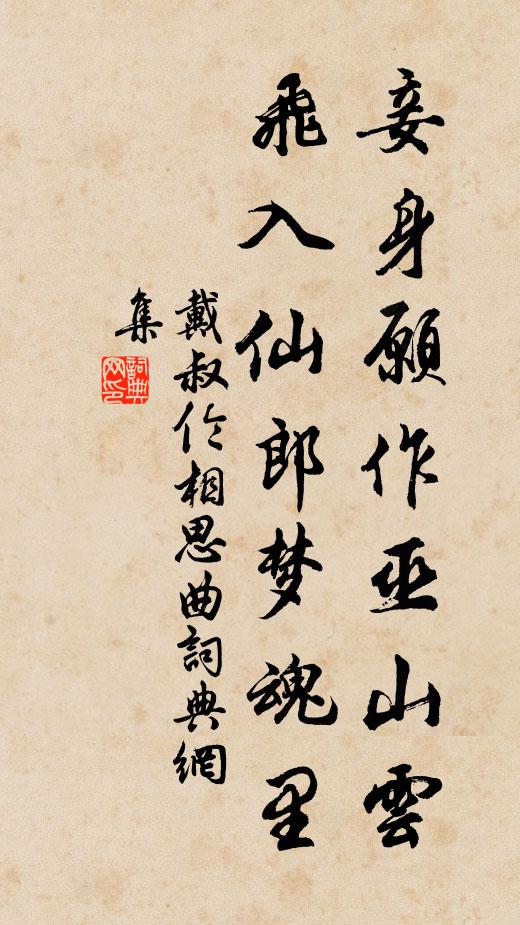 妾身願作巫山雲
飛入仙郎梦魂里
戴叔伦相思曲詞典網
集
詞典网印